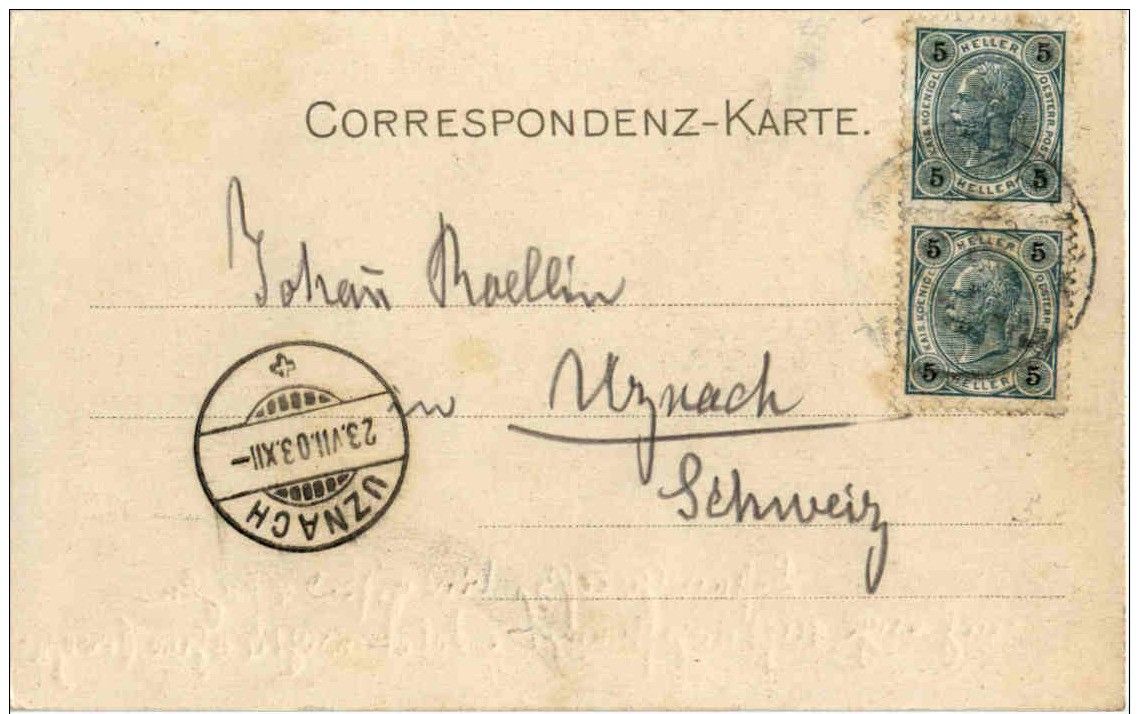 CORRESPONDENZ-KARTE.
5 HELLER 5
KAIS. KOENIGL. OESTERR. POST.
5 HELLER 5
5 HELLER 5
KAIS. KOENIGL. OESTERR.
5 HELLER 5
Johañ Roellin
in Uznach
Schweiz
23.VII.03.XII–
UZNACH